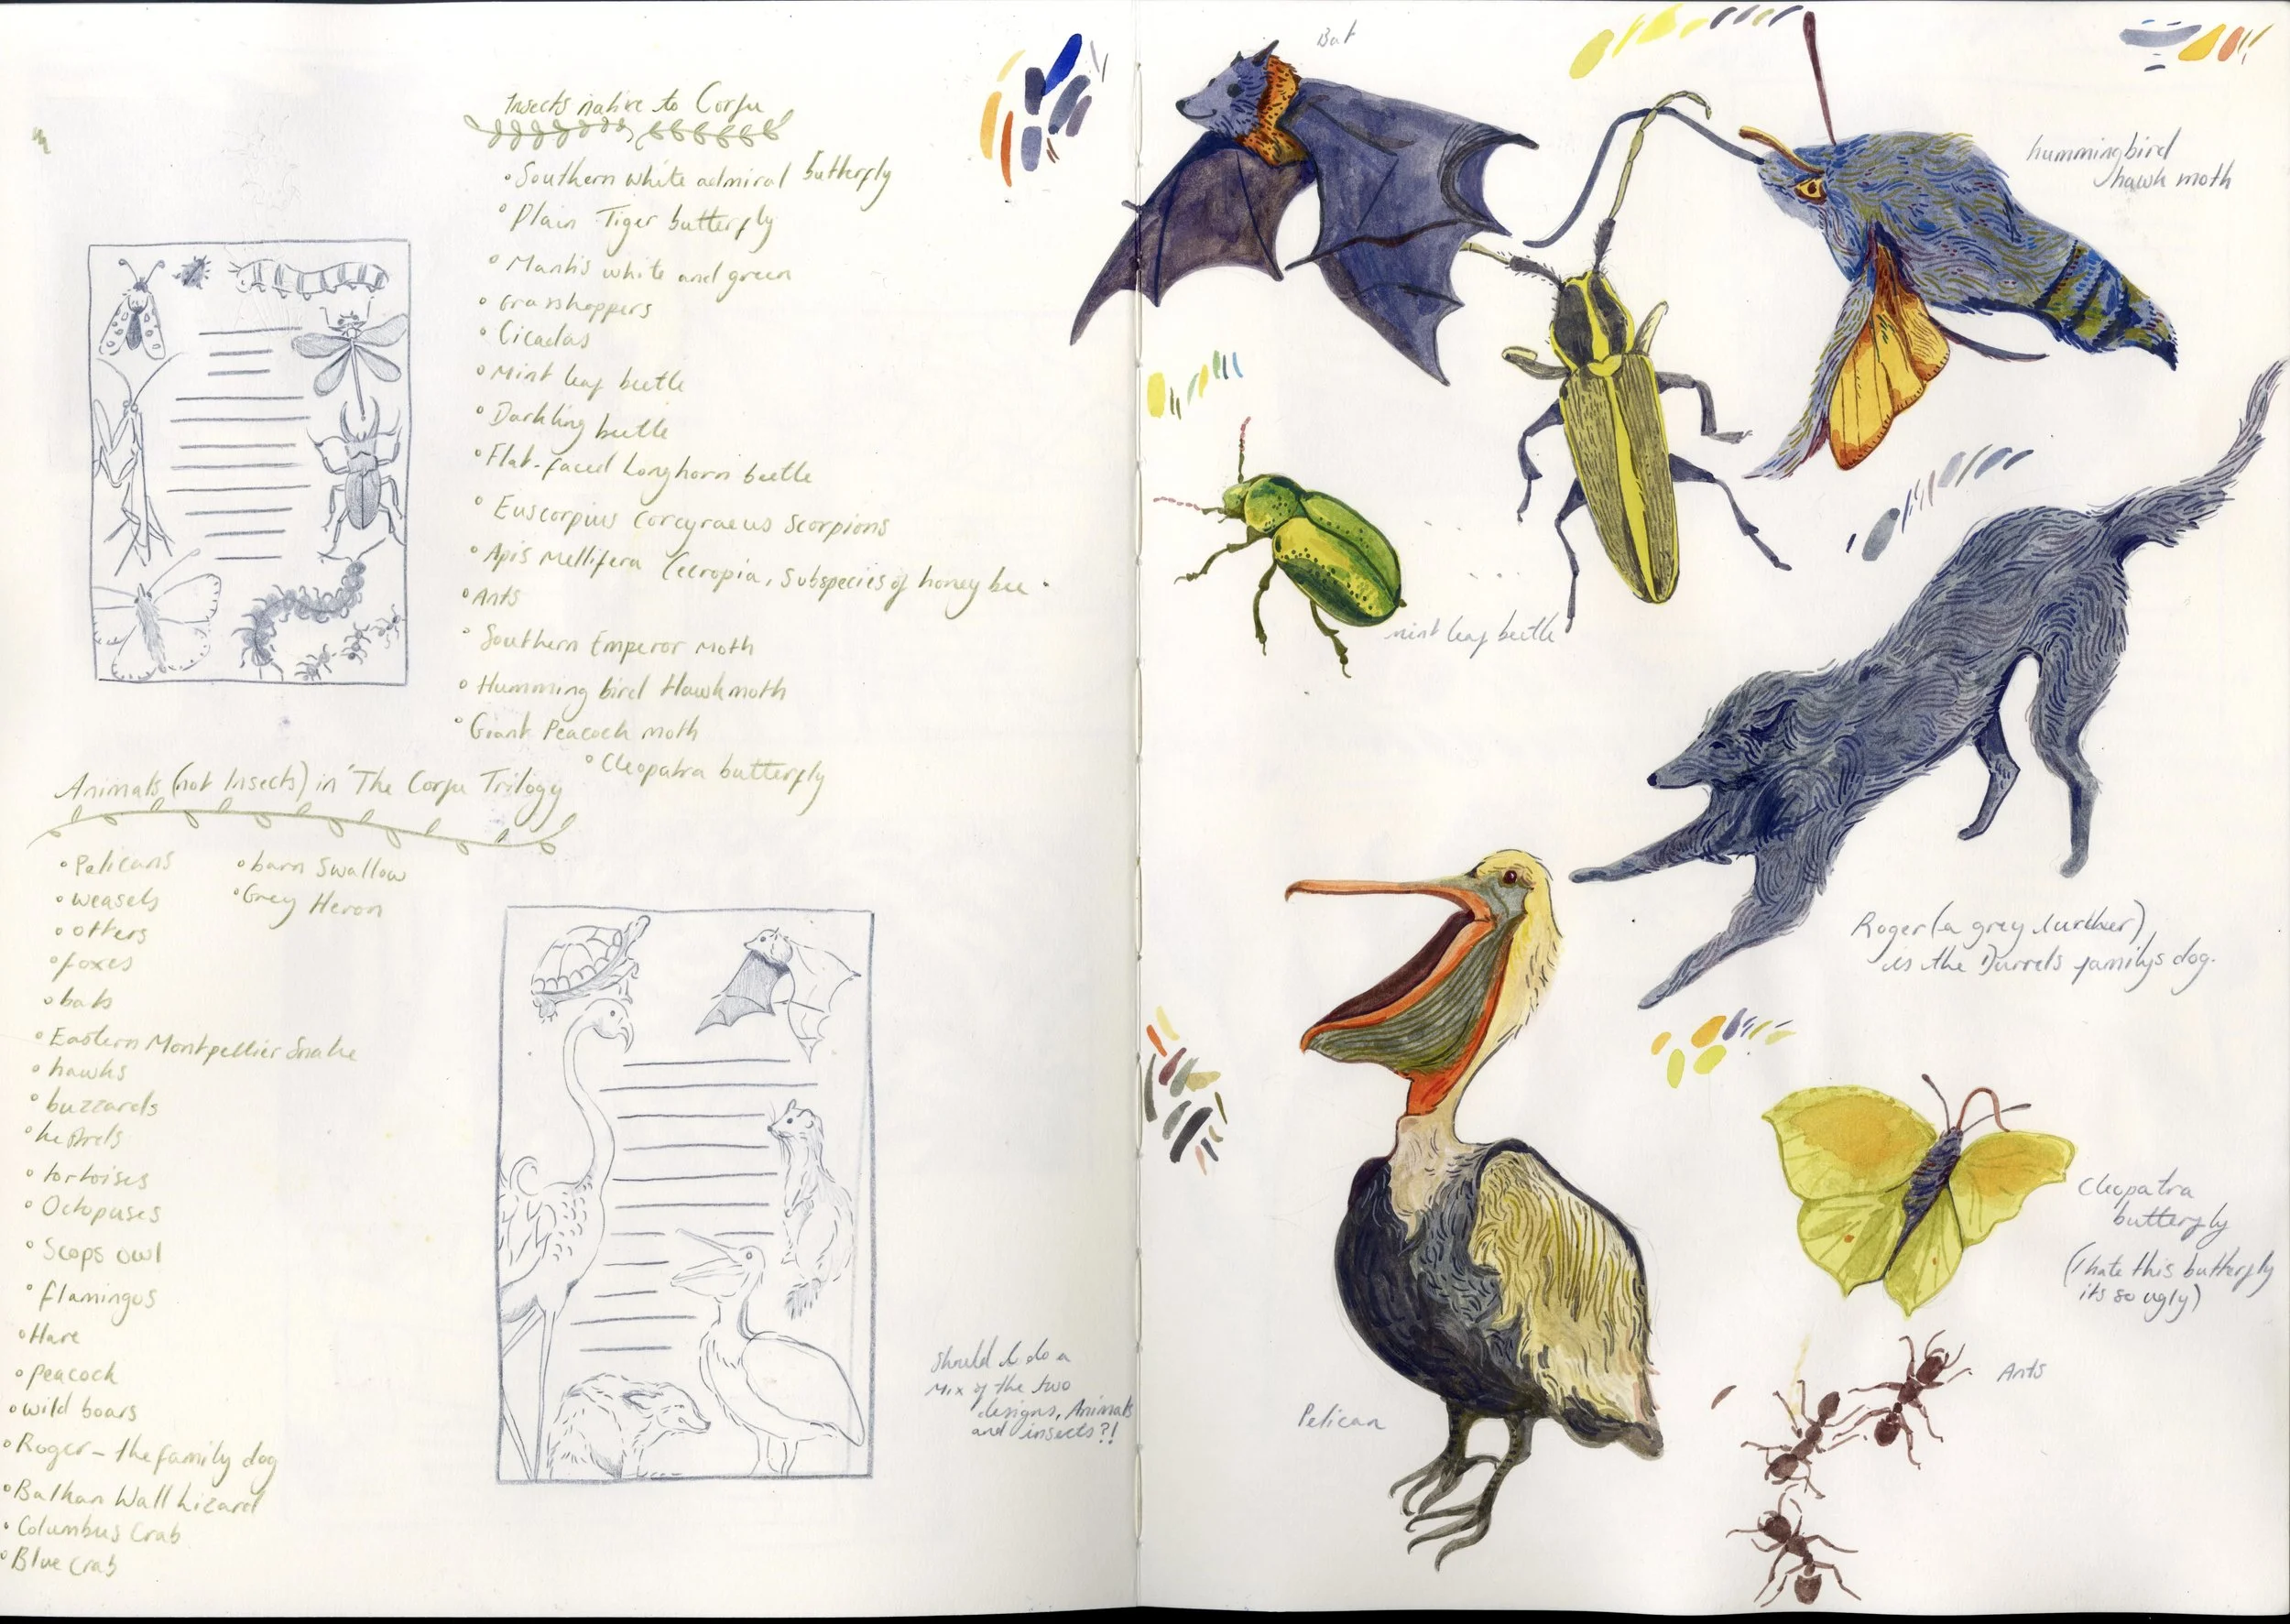 Insects native to Corfu
• Southern white admiral butterfly
• Plain Tiger butterfly
• Mantis white and green
• Grasshoppers
• Cicadas
• Mint leaf beetle
• Darkling beetle
• Flat-faced Longhorn beetle
• Euscorpius Corcyraeus Scorpions
• Apis Mellifera Cecropia, Subspecies of honey bee.
• Ants
• Southern Emperor Moth
• Humming bird Hawkmoth
• Giant Peacock moth
• Cleopatra butterfly
Animals (not Insects) in 'The Corfu Trilogy
• Pelicans
• weasels
• otters
• foxes
• bats
• Eastern Montpellier Snake
• hawks
• buzzards
• kestrels
• tortoises
• Octopuses
• Scops owl
• flamingos
• Hare
• Peacock
• wild boars
• Roger – the family dog
• Balkan Wall Lizard
• Columbus Crab
• Blue Crab
• barn Swallow
• Grey Heron
Should I do a
Mix of the two
designs, Animals
and insects?!
Bat
hummingbird
hawk moth
mint leaf beetle
Roger (a grey lurcher)
is the Durrels familys dog.
Pelican
Cleopatra
butterfly
(I hate this butterfly
its so ugly)
Ants